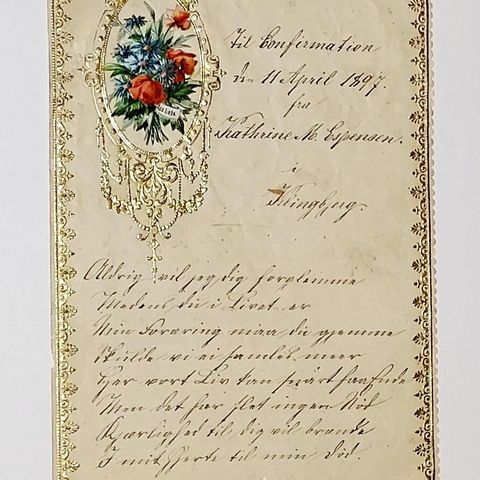 Til Confirmation
den 11 April 1897.
fra
Kathrine M. Espensen.
i
Aldrig vil jeg dig forglemme
Medens du i Livet er
Min Foræring maa du gjemme
Skulde vi ei samles meer
Her vort Liv kan snart faa Ende
Men det har slet ingen Nød
Kjærlighed til dig vil brænde
I mit Hjerte til min Død.